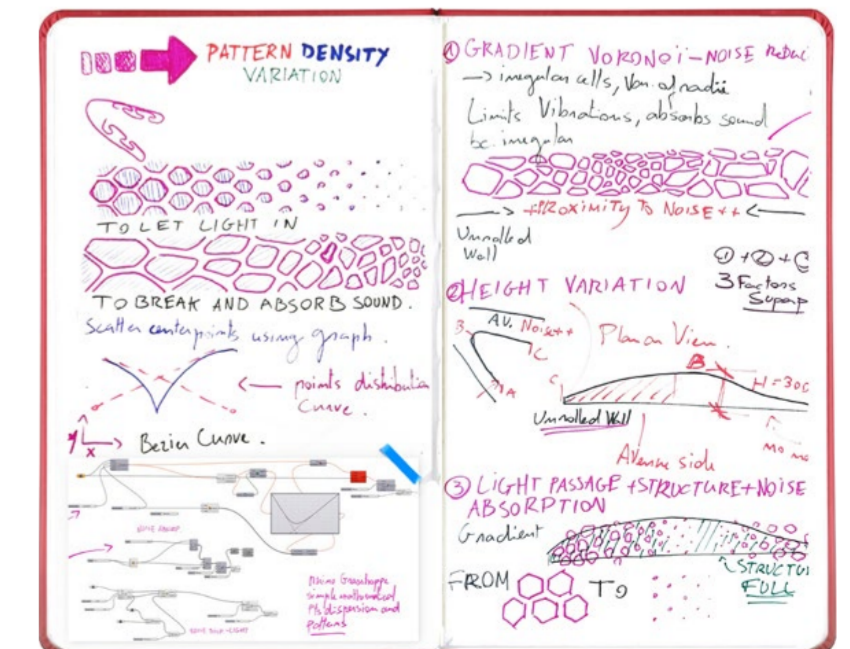 PATTERN DENSITY
VARIATION
TO LET LIGHT IN
TO BREAK AND ABSORB SOUND.
Scatter centerpoints using graph.
points distributio
Curve.
y
x
Bezier Curve.
Using Grasshopper
simple mathematical
Pts dispersion and
patterns
① GRADIENT VORONOï-NOISE Reduc
→ irregular cells, Var. of radii
Limits Vibrations, absorbs sound
bc. irregular
PROXIMITY TO NOISE ++
Unrolled
Wall
① + ② +
3 Factors
Superp
② HEIGHT VARIATION
AV. Noise++
B
C
A
Plan on View.
B
C
H=300
Unrolled Wall
Avenue side
③ LIGHT PASSAGE +STRUCTURE+NOISE
ABSORPTION
Gradient
STRUCTU
FULL
FROM
TO